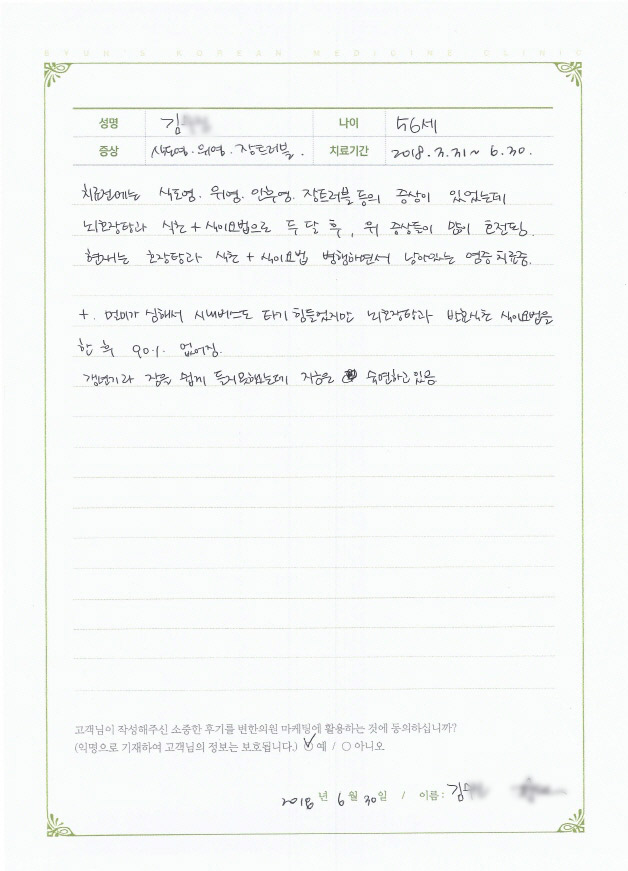 BYUN'S KOREAN MEDICINE CLINIC
성명 김 나이 56세
증상 식도염. 위염. 장트러블. 치료기간 2018. 3. 31 ~ 6. 30.
치료전에는 식도염. 위염. 인후염. 장트러블 등의 증상이 있었는데
뇌호장탕과 식초 + 식이요법으로 두 달 후, 위 증상들이 많이 호전됨.
현재는 호장탕과 식초 + 식이요법 병행하면서 남아있는 염증 치료중.
+. 멀미가 심해서 시내버스도 타기 힘들었지만 뇌호장탕과 발효식초 식이요법을
한 후 90% 없어짐.
갱년기라 잠을 쉽게 못했는데 지금은 숙면하고 있음
고객님이 작성해주신 소중한 후기를 변한의원 마케팅에 활용하는 것에 동의하십니까?
(익명으로 기재하여 고객님의 정보는 보호됩니다.) ○ 예 / ○ 아니오
2018 년 6 월 30 일 / 이름 : 김